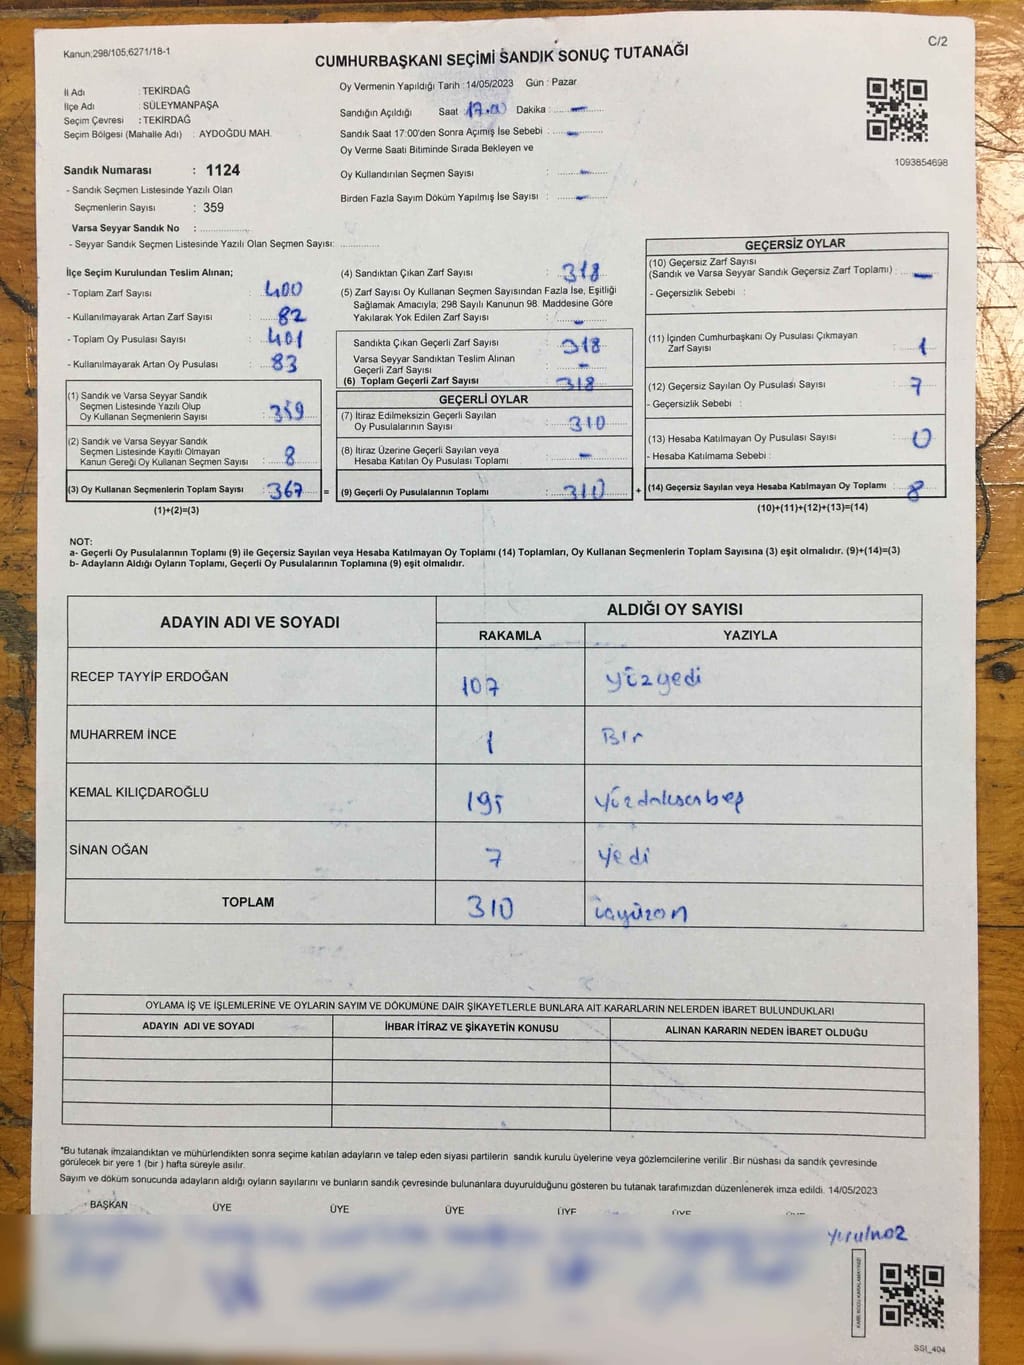 Kanun;298/105;6271/18-1
C/2
CUMHURBAŞKANI SEÇİMİ SANDIK SONUÇ TUTANAĞI
İl Adı : TEKİRDAĞ
İlçe Adı : SÜLEYMANPAŞA
Seçim Çevresi : TEKİRDAĞ
Seçim Bölgesi (Mahalle Adı) : AYDOĞDU MAH.
Oy Vermenin Yapıldığı Tarih : 14/05/2023 Gün : Pazar
Sandığın Açıldığı Saat 17.00 Dakika : —
Sandık Saat 17:00'den Sonra Açımış İse Sebebi : —
Oy Verme Saati Bitiminde Sırada Bekleyen ve
Oy Kullandırılan Seçmen Sayısı : —
Birden Fazla Sayım Döküm Yapılmış İse Sayısı : —
1093854698
Sandık Numarası : 1124
- Sandık Seçmen Listesinde Yazılı Olan
Seçmenlerin Sayısı : 359
Varsa Seyyar Sandık No :
- Seyyar Sandık Seçmen Listesinde Yazılı Olan Seçmen Sayısı:
İlçe Seçim Kurulundan Teslim Alınan;
- Toplam Zarf Sayısı : 400
- Kullanılmayarak Artan Zarf Sayısı : 82
- Toplam Oy Pusulası Sayısı : 401
- Kullanılmayarak Artan Oy Pusulası : 83
(1) Sandık ve Varsa Seyyar Sandık
Seçmen Listesinde Yazılı Olup
Oy Kullanan Seçmenlerin Sayısı : 359
(2) Sandık ve Varsa Seyyar Sandık
Seçmen Listesinde Kayıtlı Olmayan
Kanun Gereği Oy Kullanan Seçmen Sayısı : 8
(3) Oy Kullanan Seçmenlerin Toplam Sayısı : 367 =
(1)+(2)=(3)
(4) Sandıktan Çıkan Zarf Sayısı : 318
(5) Zarf Sayısı Oy Kullanan Seçmen Sayısından Fazla İse, Eşitliği
Sağlamak Amacıyla; 298 Sayılı Kanunun 98. Maddesine Göre
Yakılarak Yok Edilen Zarf Sayısı : —
Sandıkta Çıkan Geçerli Zarf Sayısı : 318
Varsa Seyyar Sandıktan Teslim Alınan
Geçerli Zarf Sayısı : —
(6) Toplam Geçerli Zarf Sayısı : 318
GEÇERLİ OYLAR
(7) İtiraz Edilmeksizin Geçerli Sayılan
Oy Pusulalarının Sayısı : 310
(8) İtiraz Üzerine Geçerli Sayılan veya
Hesaba Katılan Oy Pusulası Toplamı : —
(9) Geçerli Oy Pusulalarının Toplamı : 310 +
GEÇERSİZ OYLAR
(10) Geçersiz Zarf Sayısı
(Sandık ve Varsa Seyyar Sandık Geçersiz Zarf Toplamı) : —
- Geçersizlik Sebebi :
(11) İçinden Cumhurbaşkanı Oy Pusulası Çıkmayan
Zarf Sayısı : 1
(12) Geçersiz Sayılan Oy Pusulası Sayısı : 7
- Geçersizlik Sebebi :
(13) Hesaba Katılmayan Oy Pusulası Sayısı : 0
- Hesaba Katılmama Sebebi :
(14) Geçersiz Sayılan veya Hesaba Katılmayan Oy Toplamı : 8
(10)+(11)+(12)+(13)=(14)
NOT:
a- Geçerli Oy Pusulalarının Toplamı (9) ile Geçersiz Sayılan veya Hesaba Katılmayan Oy Toplamı (14) Toplamları, Oy Kullanan Seçmenlerin Toplam Sayısına (3) eşit olmalıdır. (9)+(14)=(3)
b- Adayların Aldığı Oyların Toplamı, Geçerli Oy Pusulalarının Toplamına (9) eşit olmalıdır.
ADAYIN ADI VE SOYADI
ALDIĞI OY SAYISI
RAKAMLA YAZIYLA
RECEP TAYYİP ERDOĞAN 107 yüzyedi
MUHARREM İNCE 1 Bir
KEMAL KILIÇDAROĞLU 195
SİNAN OĞAN 7 yedi
TOPLAM 310 üçyüzon
OYLAMA İŞ VE İŞLEMLERİNE VE OYLARIN SAYIM VE DÖKÜMÜNE DAİR ŞİKAYETLERLE BUNLARA AİT KARARLARIN NELERDEN İBARET BULUNDUKLARI
ADAYIN ADI VE SOYADI İHBAR İTİRAZ VE ŞİKAYETİN KONUSU ALINAN KARARIN NEDEN İBARET OLDUĞU
*Bu tutanak imzalandıktan ve mühürlendikten sonra seçime katılan adayların ve talep eden siyasi partilerin sandık kurulu üyelerine veya gözlemcilerine verilir .Bir nüshası da sandık çevresinde
görülecek bir yere 1 (bir ) hafta süreyle asılır.
Sayım ve döküm sonucunda adayların aldığı oyların sayılarını ve bunların sandık çevresinde bulunanlara duyurulduğunu gösteren bu tutanak tarafımızdan düzenlenerek imza edildi. 14/05/2023
BAŞKAN ÜYE ÜYE ÜYE ÜYE ÜYE
SSI_404